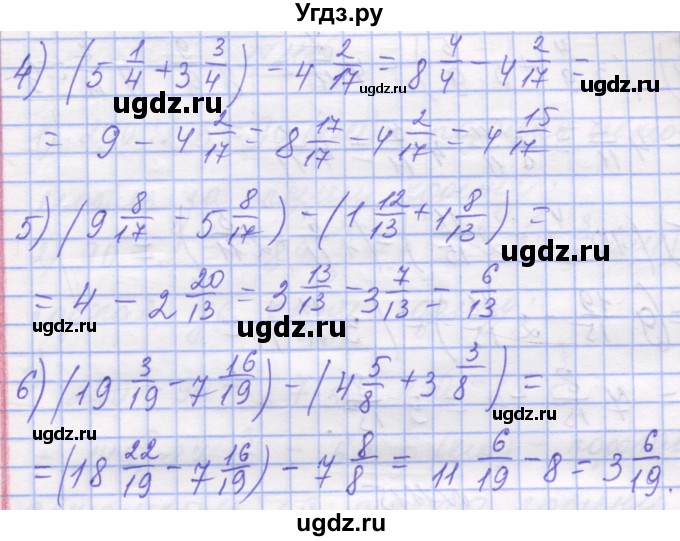 Угдз.ру
4) (5 1/4 + 3 3/4) - 4 2/17 = 8 4/4 - 4 2/17 =
ugdz.ru ugdz.ru
ugdz.ru
= 9 - 4 2/17 = 8 17/17 - 4 2/17 = 4 15/17
ugdz.ru
ugdz.ru
5) (9 8/17 - 5 8/17) - (1 12/13 + 1 8/13) =
ugdz.ru ugdz.ru
= 4 - 2 20/13 = 3 13/13 - 3 7/13 = 6/13
ugdz.ru
ugdz.ru
ugdz.ru
6) (19 3/19 - 7 16/19) - (4 5/8 + 3 3/8) =
ugdz.ru
ugdz.ru
= (18 22/19 - 7 16/19) - 7 8/8 = 11 6/19 - 8 = 3 6/19.
ugdz.ru ugdz.ru
ugdz.ru